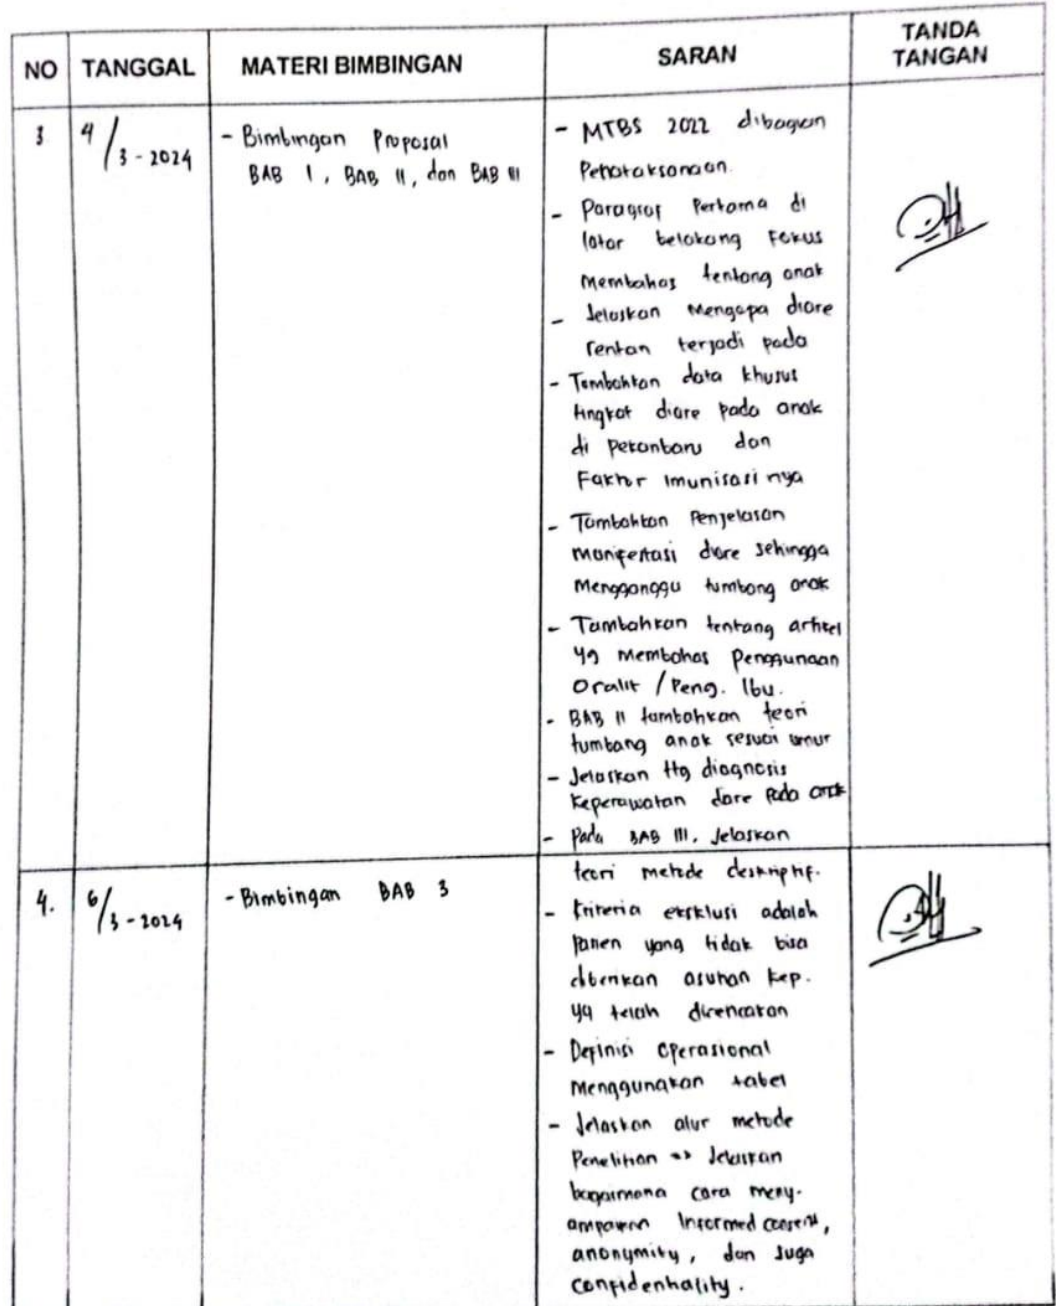 NO TANGGAL MATERI BIMBINGAN SARAN TANDA TANGAN
3 4/3-2024
- Bimbingan Proposal
BAB I, BAB II, dan BAB III
- MTBS 2022 dibagian
Penataksanaan.
- Paragraf Pertama di
latar belakang Fokus
Membahas tentang anak
- Jelaskan Mengapa diare
rentan terjadi pada
- Tambahkan data khusus
tingkat diare pada anak
di Pekanbaru dan
Faktor imunisasi nya
- Tambahkan Penjelasan
manifestasi diare sehingga
Mengganggu tumbang anak
- Tambahkan tentang artikel
yg Membahas Penggunaan
Oralit / Peng. Ibu.
- BAB II tambahkan teori
tumbang anak sesuai umur
- Jelaskan ttg diagnosis
Keperawatan diare Pada anak
- Pada BAB III, Jelaskan
teori metode deskriptif.
4. 6/3-2024
- Bimbingan BAB 3
- Kriteria eksklusi adalah
Pasien yang tidak bisa
diberikan asuhan kep.
yg telah direncakan
- Definisi Operasional
Menggunakan tabel
- Jelaskan alur metode
Penelitian => Jelaskan
bagaimana cara meny-
ampaikan Informed consent,
anonymity, dan Juga
Confidentiality.